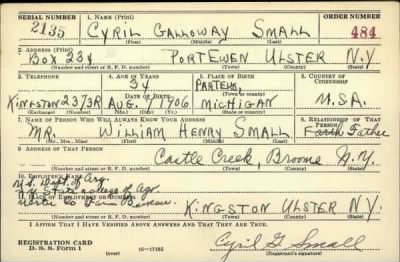 SERIAL NUMBER 1. NAME (Print) ORDER NUMBER
2135 CYRIL GALLOWAY SMALL 484
(First) (Middle) (Last)
2. ADDRESS (Print)
Box 234 PORTEWEN ULSTER N.Y
(Number and street or R. F. D. number) (Town) (County) (State)
3. TELEPHONE 4. AGE IN YEARS 5. PLACE OF BIRTH 6. COUNTRY OF CITIZENSHIP
34
DATE OF BIRTH (Town or county)
KINGSTON 2373R AUG. 1 1906 MICHIGAN U.S.A.
(Exchange) (Number) (Mo.) (Day) (Yr.) (State or country)
7. NAME OF PERSON WHO WILL ALWAYS KNOW YOUR ADDRESS 8. RELATIONSHIP OF THAT PERSON
MR. WILLIAM HENRY SMALL Father
(Mr., Mrs., Miss) (First) (Middle) (Last)
9. ADDRESS OF THAT PERSON
Castle Creek, Broome N.Y.
(Number and street or R. F. D. number) (Town) (County) (State)
10. EMPLOYER'S NAME
U.S. Dept. of Agr.
State College of Agr.
11. PLACE OF EMPLOYMENT OR BUSINESS
Ulster Co Farm Bureau KINGSTON ULSTER N.Y.
(Number and street or R. F. D. number) (Town) (County) (State)
I AFFIRM THAT I HAVE VERIFIED ABOVE ANSWERS AND THAT THEY ARE TRUE.
REGISTRATION CARD
D. S. S. Form 1 (over) 16—17105 Cyril G. Small
(Registrant's signature)